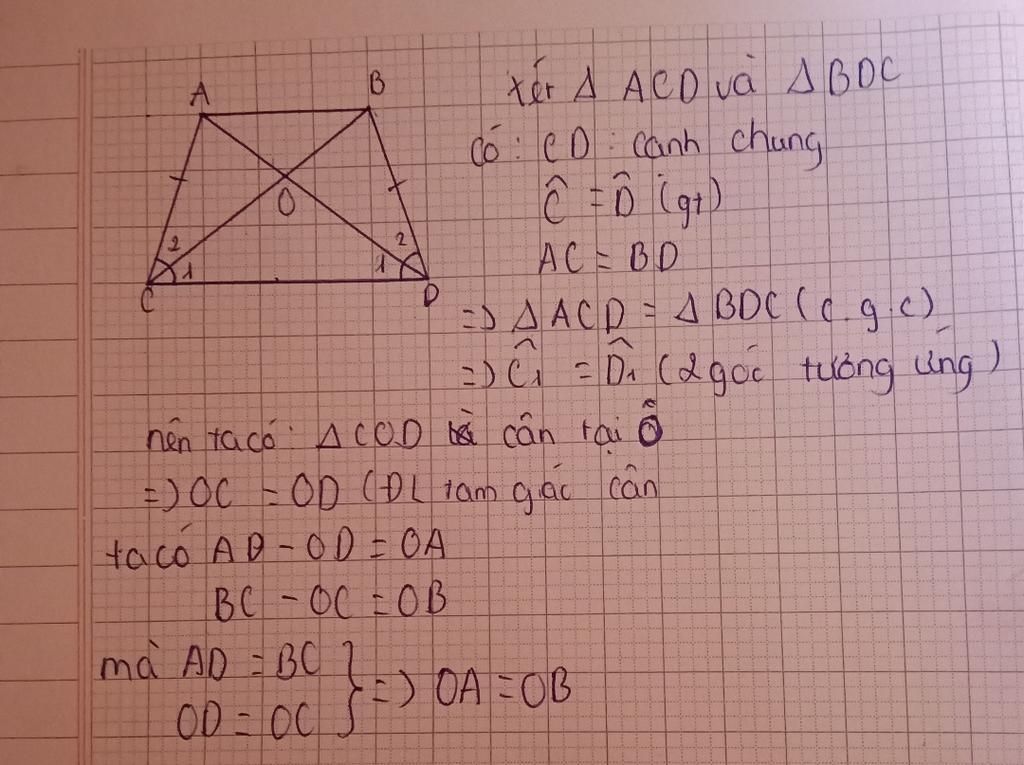 A
B
O
2
1
2
1
C
D
xét Δ ACD và Δ BDC
có: CD: cạnh chung
Ĉ = D̂ (gt)
AC = BD
=> Δ ACD = Δ BDC (c.g.c)
=> Ĉ₁ = D̂₁ (2 góc tương ứng)
nên ta có: Δ COD cân tại O
=> OC = OD (ĐL tam giác cân
ta có AD - OD = OA
BC - OC = OB
mà AD = BC
OD = OC } => OA = OB